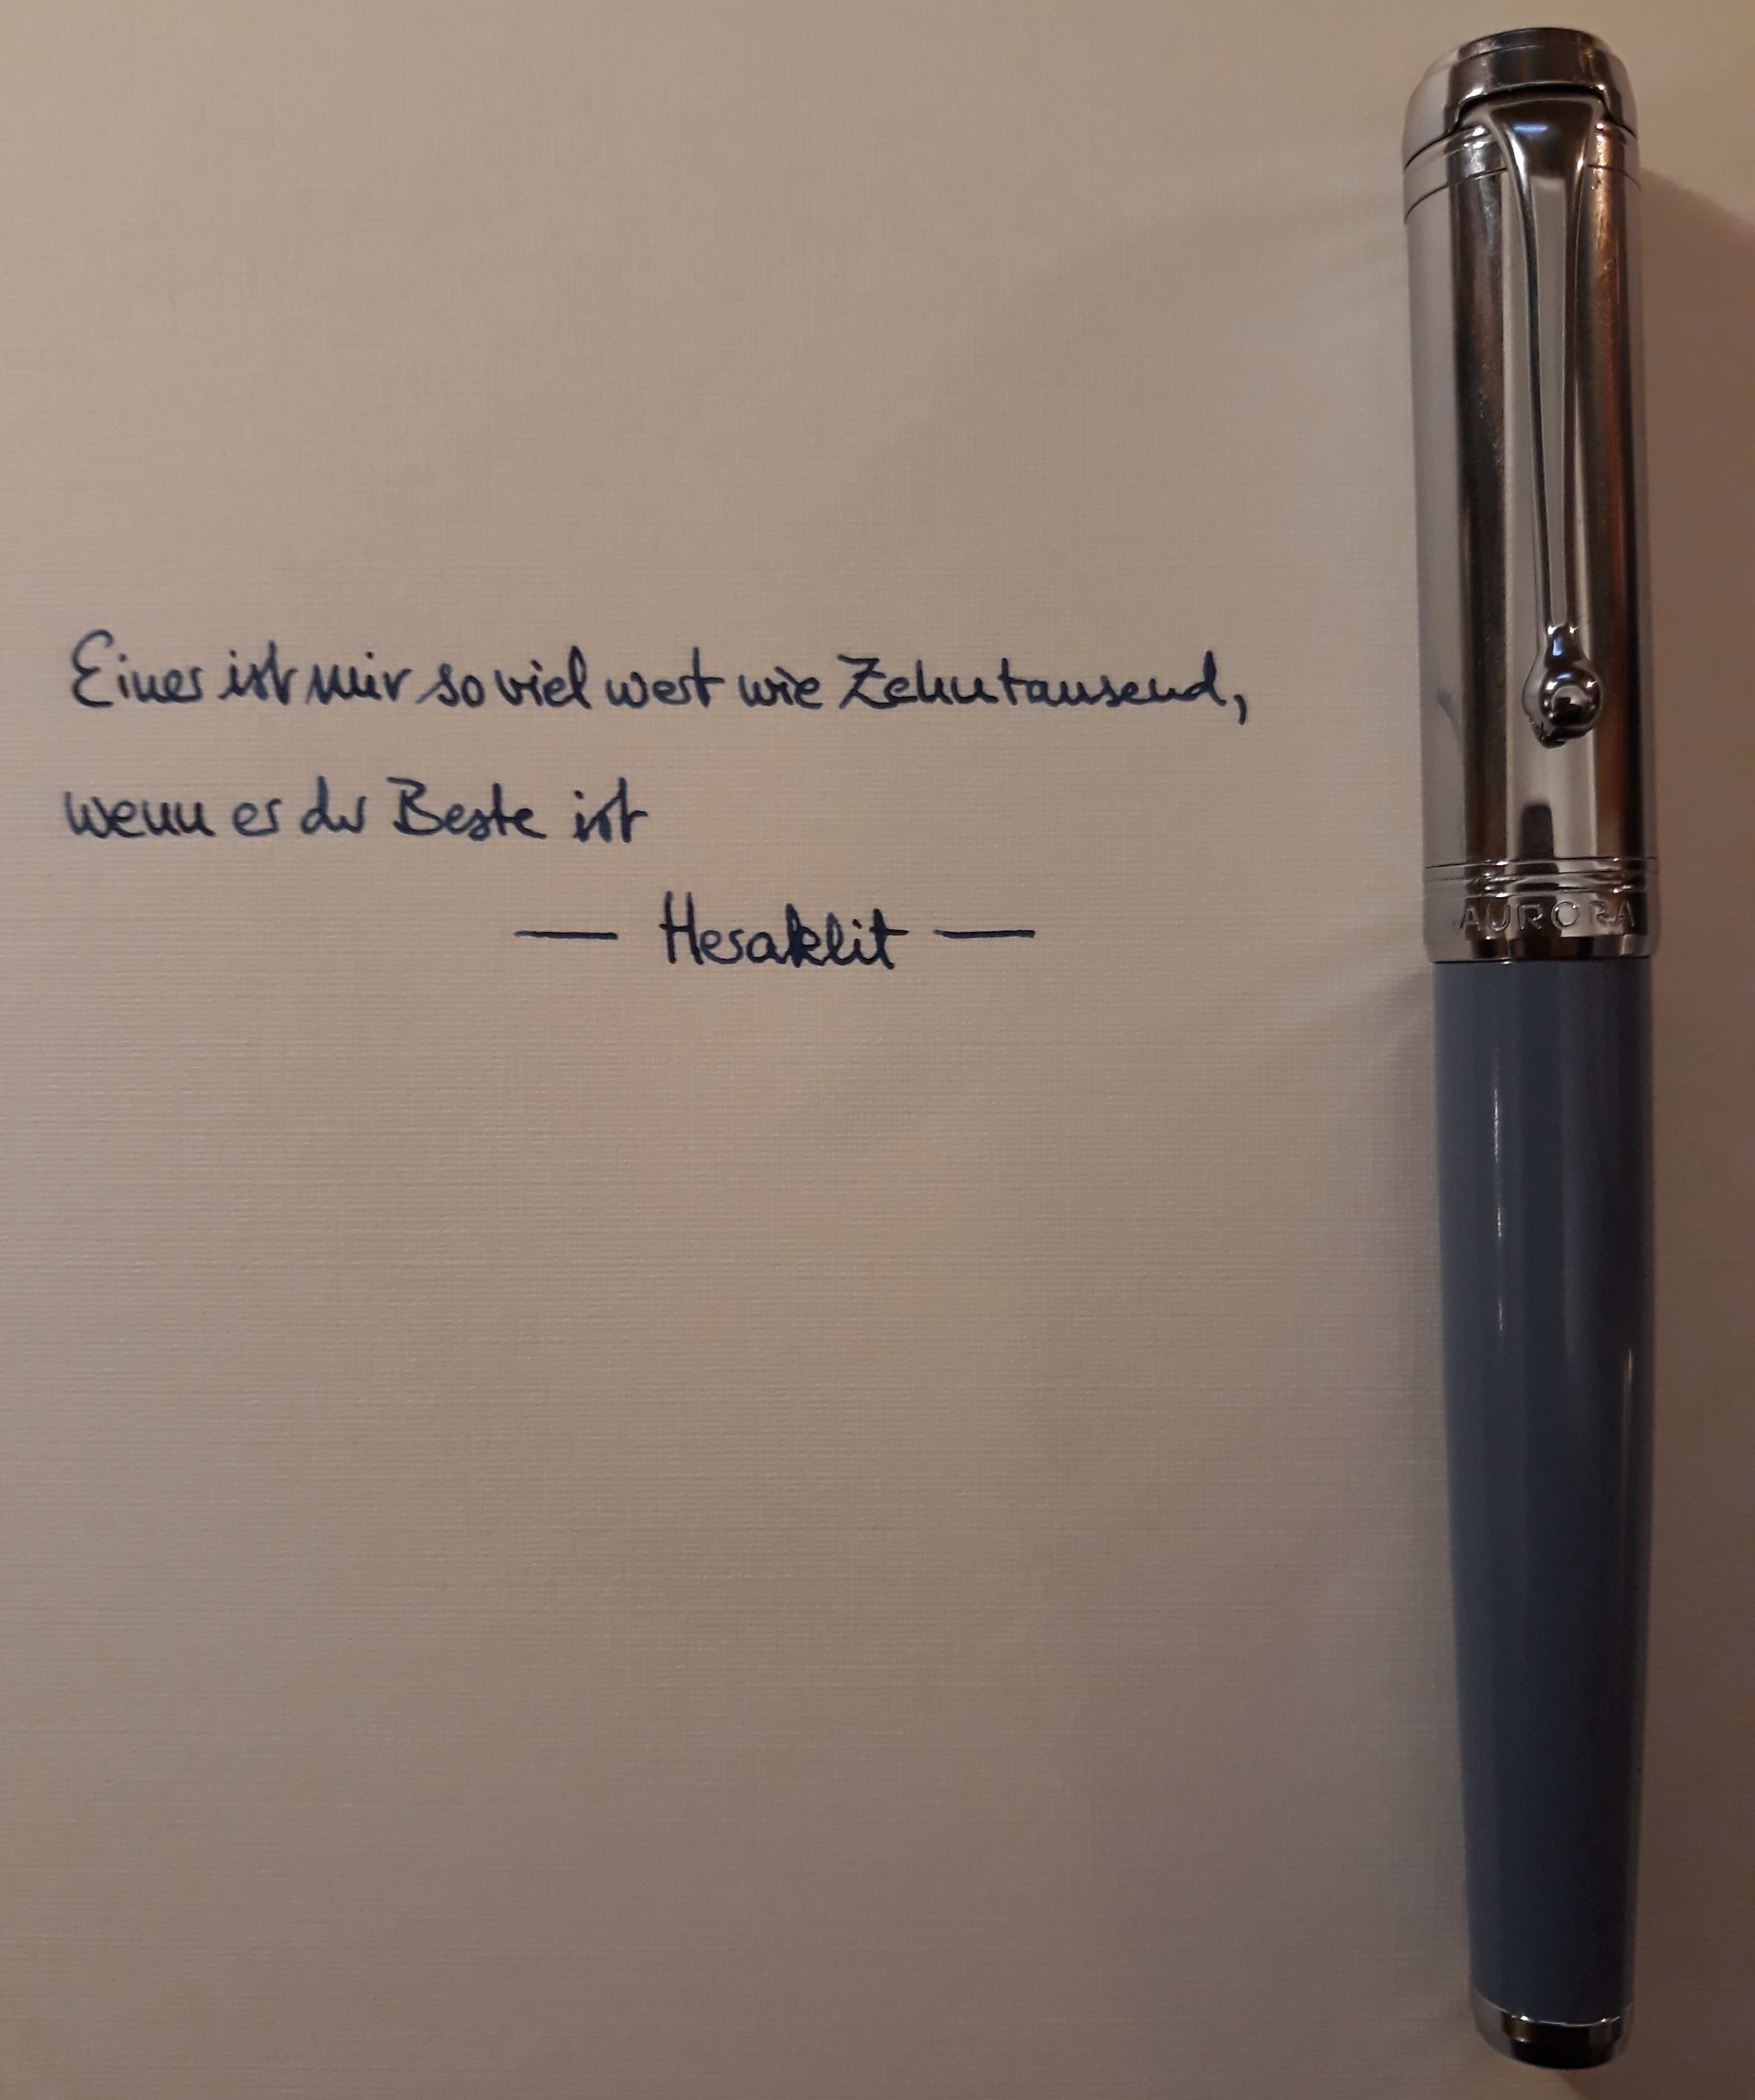 Einer ist mir so viel wert wie Zehntausend,
wenn er der Beste ist
— Heraklit —
AURORA